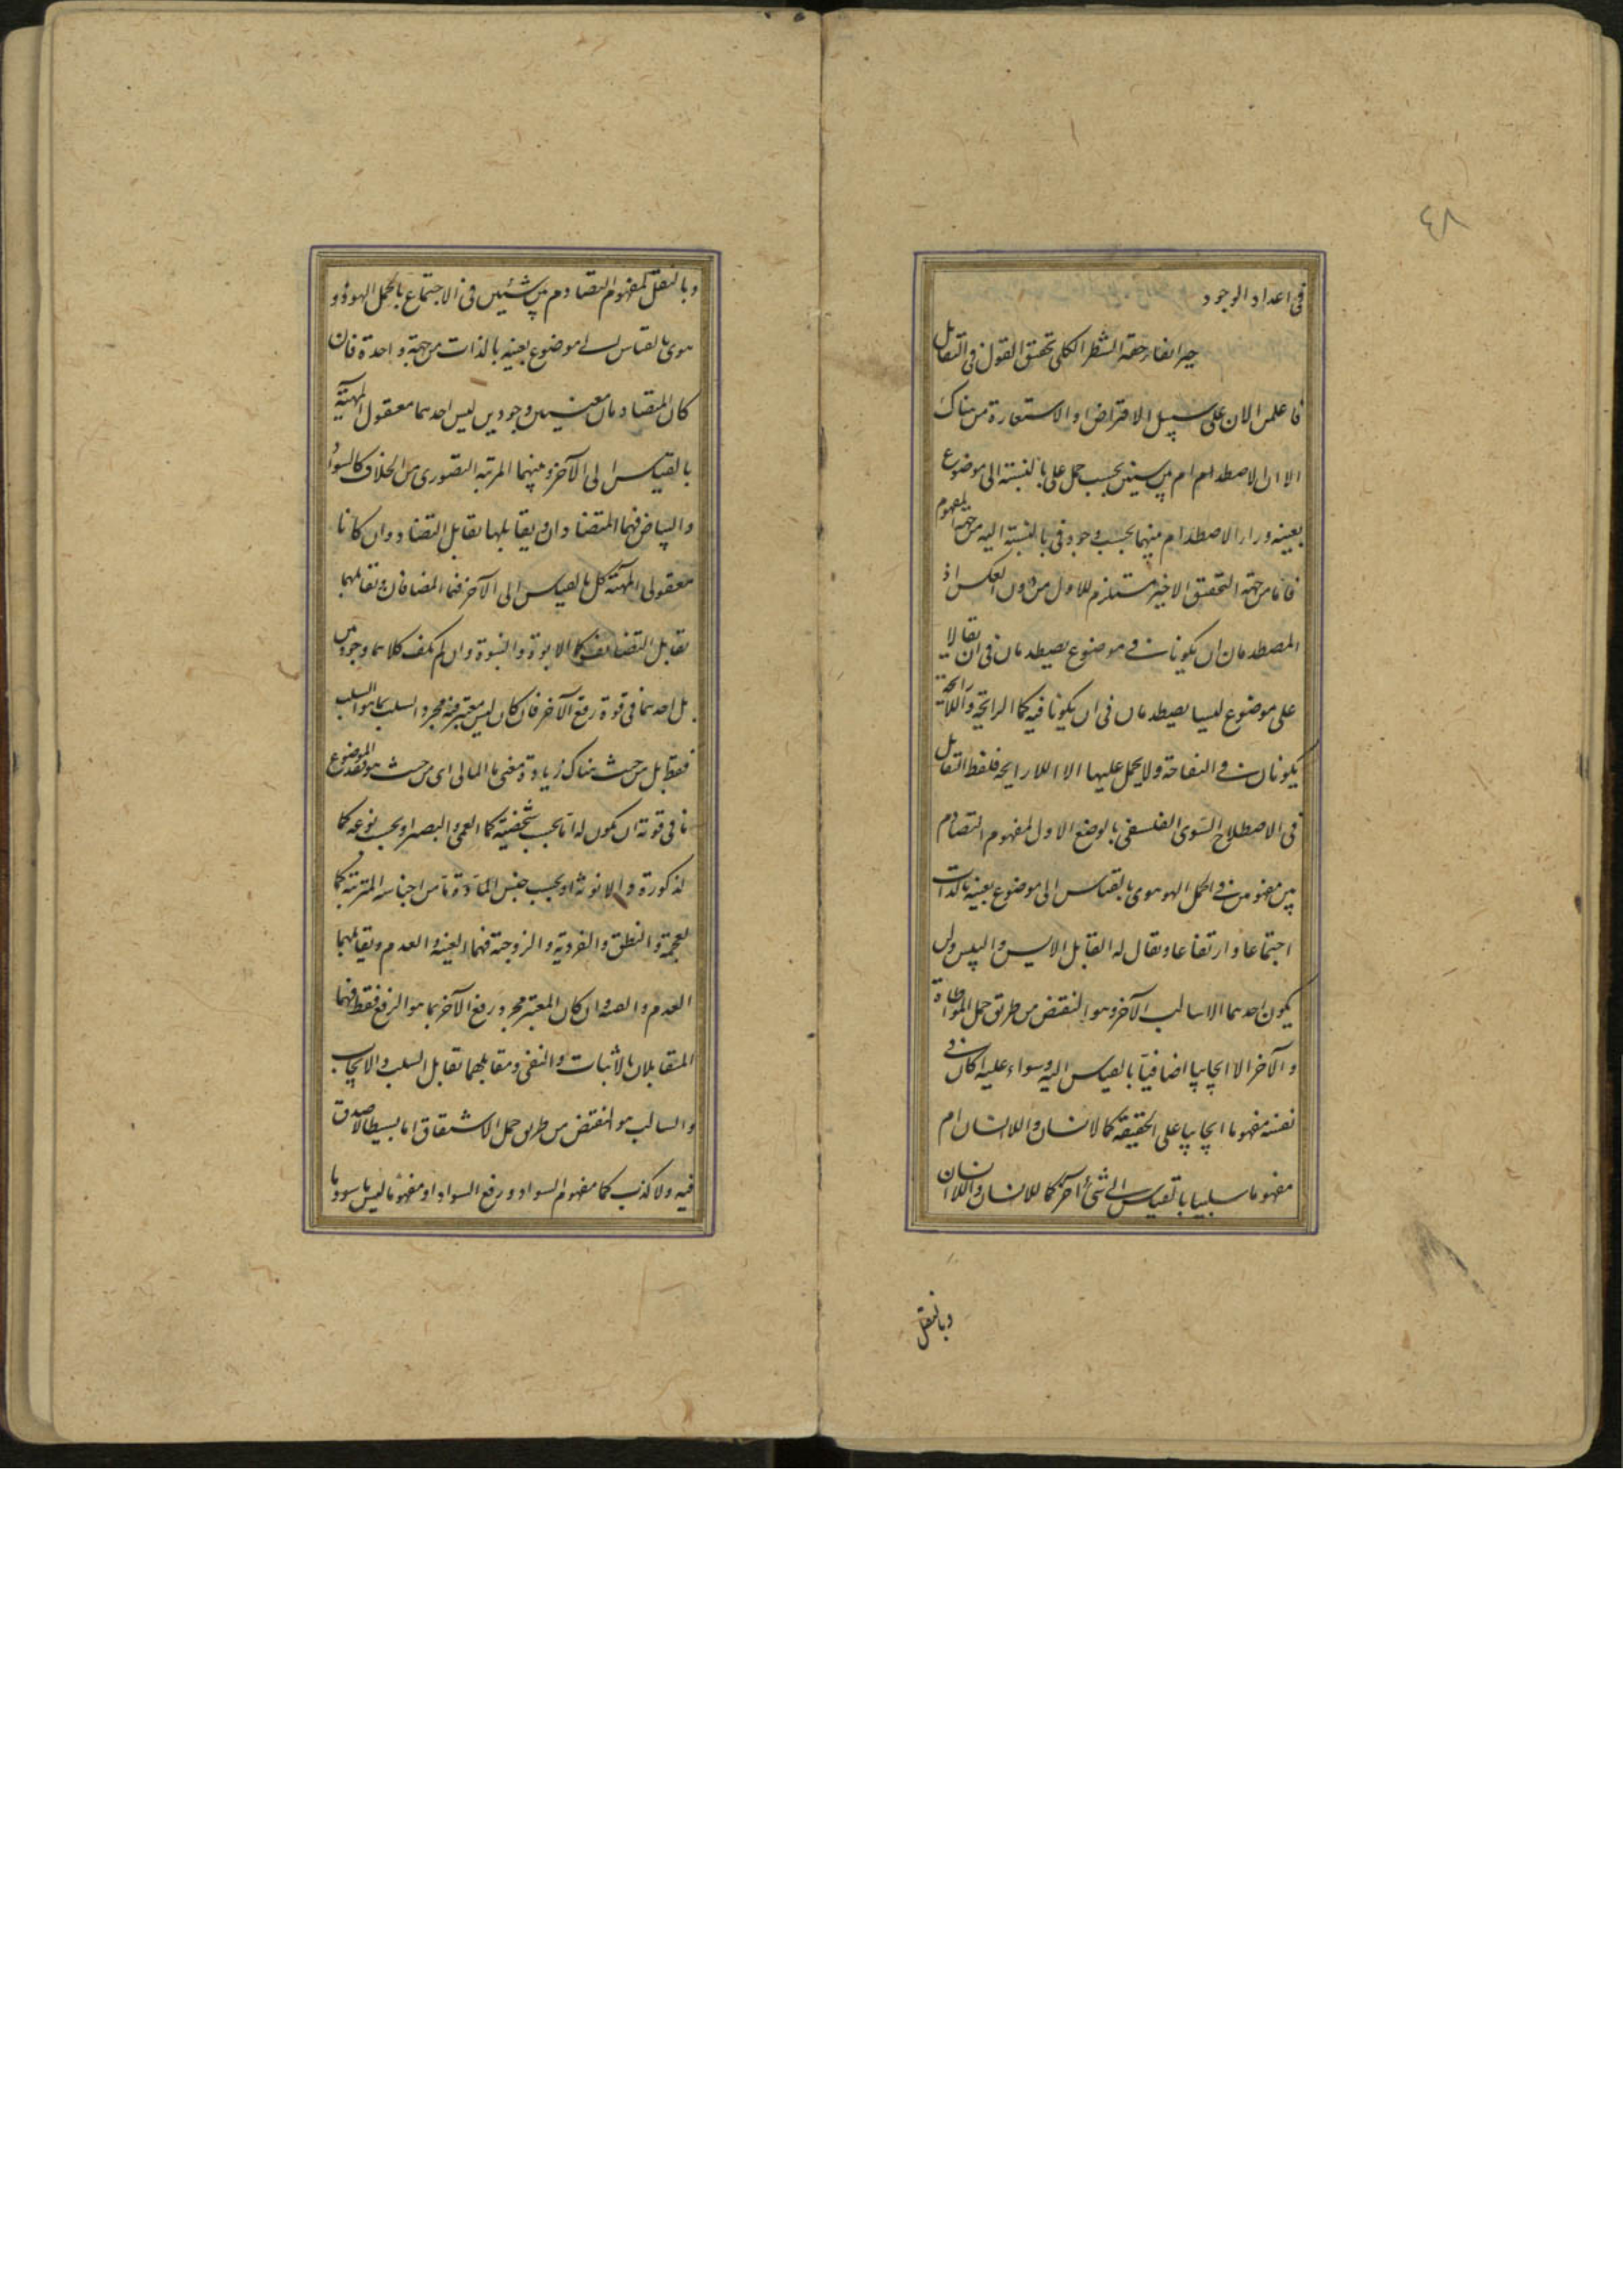 ٤٨
في اعداد الوجود
حيز ايفاء حقه الشطر الكلي تحقيق القول في التقابل
فاعلمن الان على سبيل الاقتراض والاستعارة من هناك
الا ان الاصطدام بين شيئين بحسب حمل على بالنسبة الى موضوع
بعينه وراء الاصطدام بينهما بحسب وجود في بالنسبة اليه من جهة المفهوم
فاما من جهة التحقق الاخير مستلزم للاول من دون العكس اذ
المصطدمان ان يكونا في موضوع يصطدمان في ان يقالا
على موضوع ليسا يصطدمان في ان يكونا فيه كما الرايحة واللا رايحة
يكونان في التفاحة ولا يحمل عليها الا اللا رايحة فلفظ التقابل
في الاصطلاح السوى الفلسفي بالوضع الاول لمفهوم التصادم
بين مفهومين في الحمل الهو هوى بالقياس الى موضوع بعينه بالذات
اجتماعا وارتفاعا ويقال له التقابل الايس والليس ولن
يكون احدهما الا سالب الآخر وهو النقيض من طريق حمل المواطاة
والآخر الا ايجابيا اضافيا بالقياس اليه وسواء عليه اكان في
نفسه مفهوما ايجابيا على الحقيقة كالانسان واللاانسان ام
مفهوما سلبيا بالقياس الى شيء آخر كاللاانسان واللا انسان
وبالنقل
وبالنقل لمفهوم التصادم بين شيئين في الاجتماع بالحمل الهو ذو و
هوى بالقياس الى موضوع بعينه بالذات من جهة واحدة فان
كان المتصادمان معنيين وجوديين ليس احدهما معقول المهية
بالقياس الى الآخر وبينهما المرتبة القصوى من الخلاف كالسواد
والبياض فهما المتضادان ويقابلهما تقابل التضاد وان كانا
معقولي المهية كل بالقياس الى الآخر فهما المضافان وتقابلهما
تقابل التضايف كما الابوة والبنوة وان لم يكن كلاهما وجوديين
بل احدهما في قوة رفع الآخر فان كان ليس معتبر فيه مجرد السلب بما هو السلب
فقط بل من حيث هناك زيادة معنى بالمآل اى من حيث هو فقد الموضوع
ما في قوته ان يكون له اما بحسب شخصيته كما العمى والبصر او بحسب نوعه كما
الذكورة والانوثة او بحسب جنس المادة ما من اجناسه المترتبة كما
العجمة والنطق والفردية والزوجية فهما القنية والعدم وتقابلهما
العدم والقنية وان كان المعتبر مجرد رفع الآخر بما هو الرفع فقط فهما
المتقابلان بالاثبات والنفى ومقابلهما تقابل السلب والايجاب
والسالب هو النقيض من طريق حمل الاشتقاق اما بسيطا لا صدق
فيه ولا كذب كما مفهوم السواد ورفع السواد او مفهوم ما ليس باسود ما